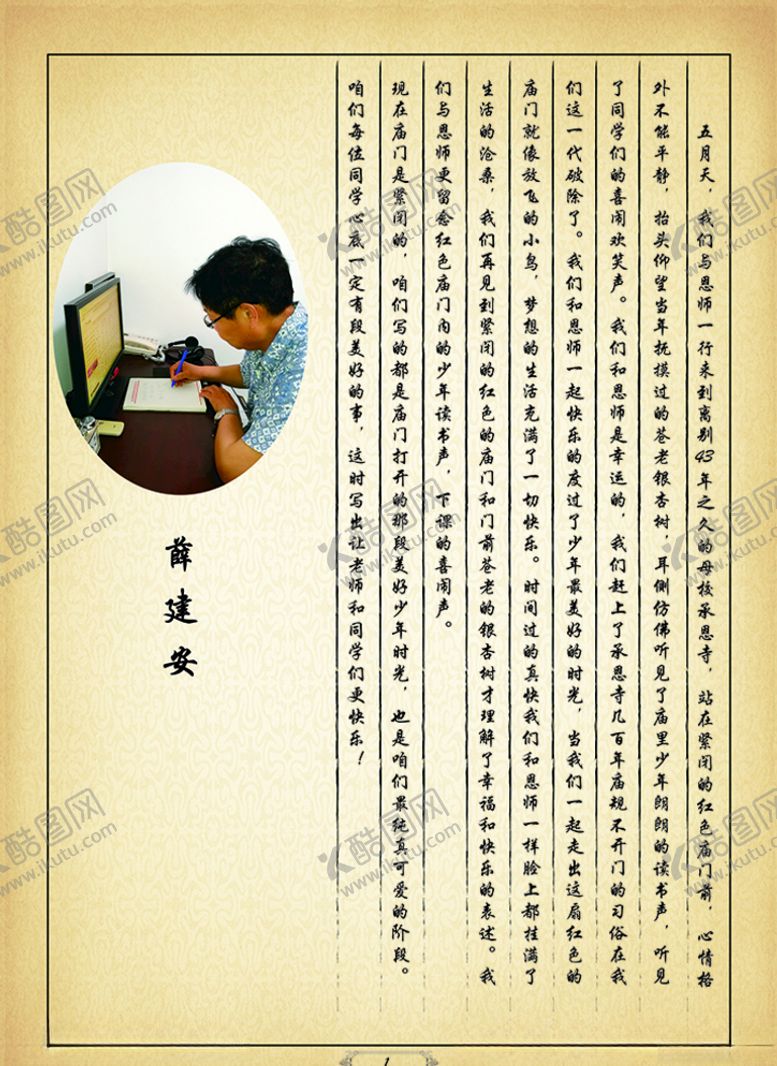 五月天，我们与恩师一行来到离别43年之久的母校承恩寺，站在紧闭的红色庙门前，心情格
外不能平静，抬头仰望当年抚摸过的苍老银杏树，耳侧仿佛听见了庙里少年朗朗的读书声，听见
了同学们的喜闹欢笑声。我们和恩师是幸运的，我们赶上了承恩寺几百年庙规不开门的习俗在我
们这一代破除了。我们和恩师一起快乐的度过了少年最美好的时光，当我们一起走出这扇红色的
庙门就像放飞的小鸟，梦想的生活充满了一切快乐。时间过的真快我们和恩师一样脸上都挂满了
生活的沧桑，我们再见到紧闭的红色的庙门和门前苍老的银杏树才理解了幸福和快乐的表述。我
们与恩师更留念红色庙门内的少年读书声，下课的喜闹声。
现在庙门是紧闭的，咱们写的都是庙门打开的那段美好少年时光，也是咱们最纯真可爱的阶段。
咱们每位同学心底一定有段美好的事，这时写出让老师和同学们更快乐！
薛建安
1
酷图网
www.ikutu.com